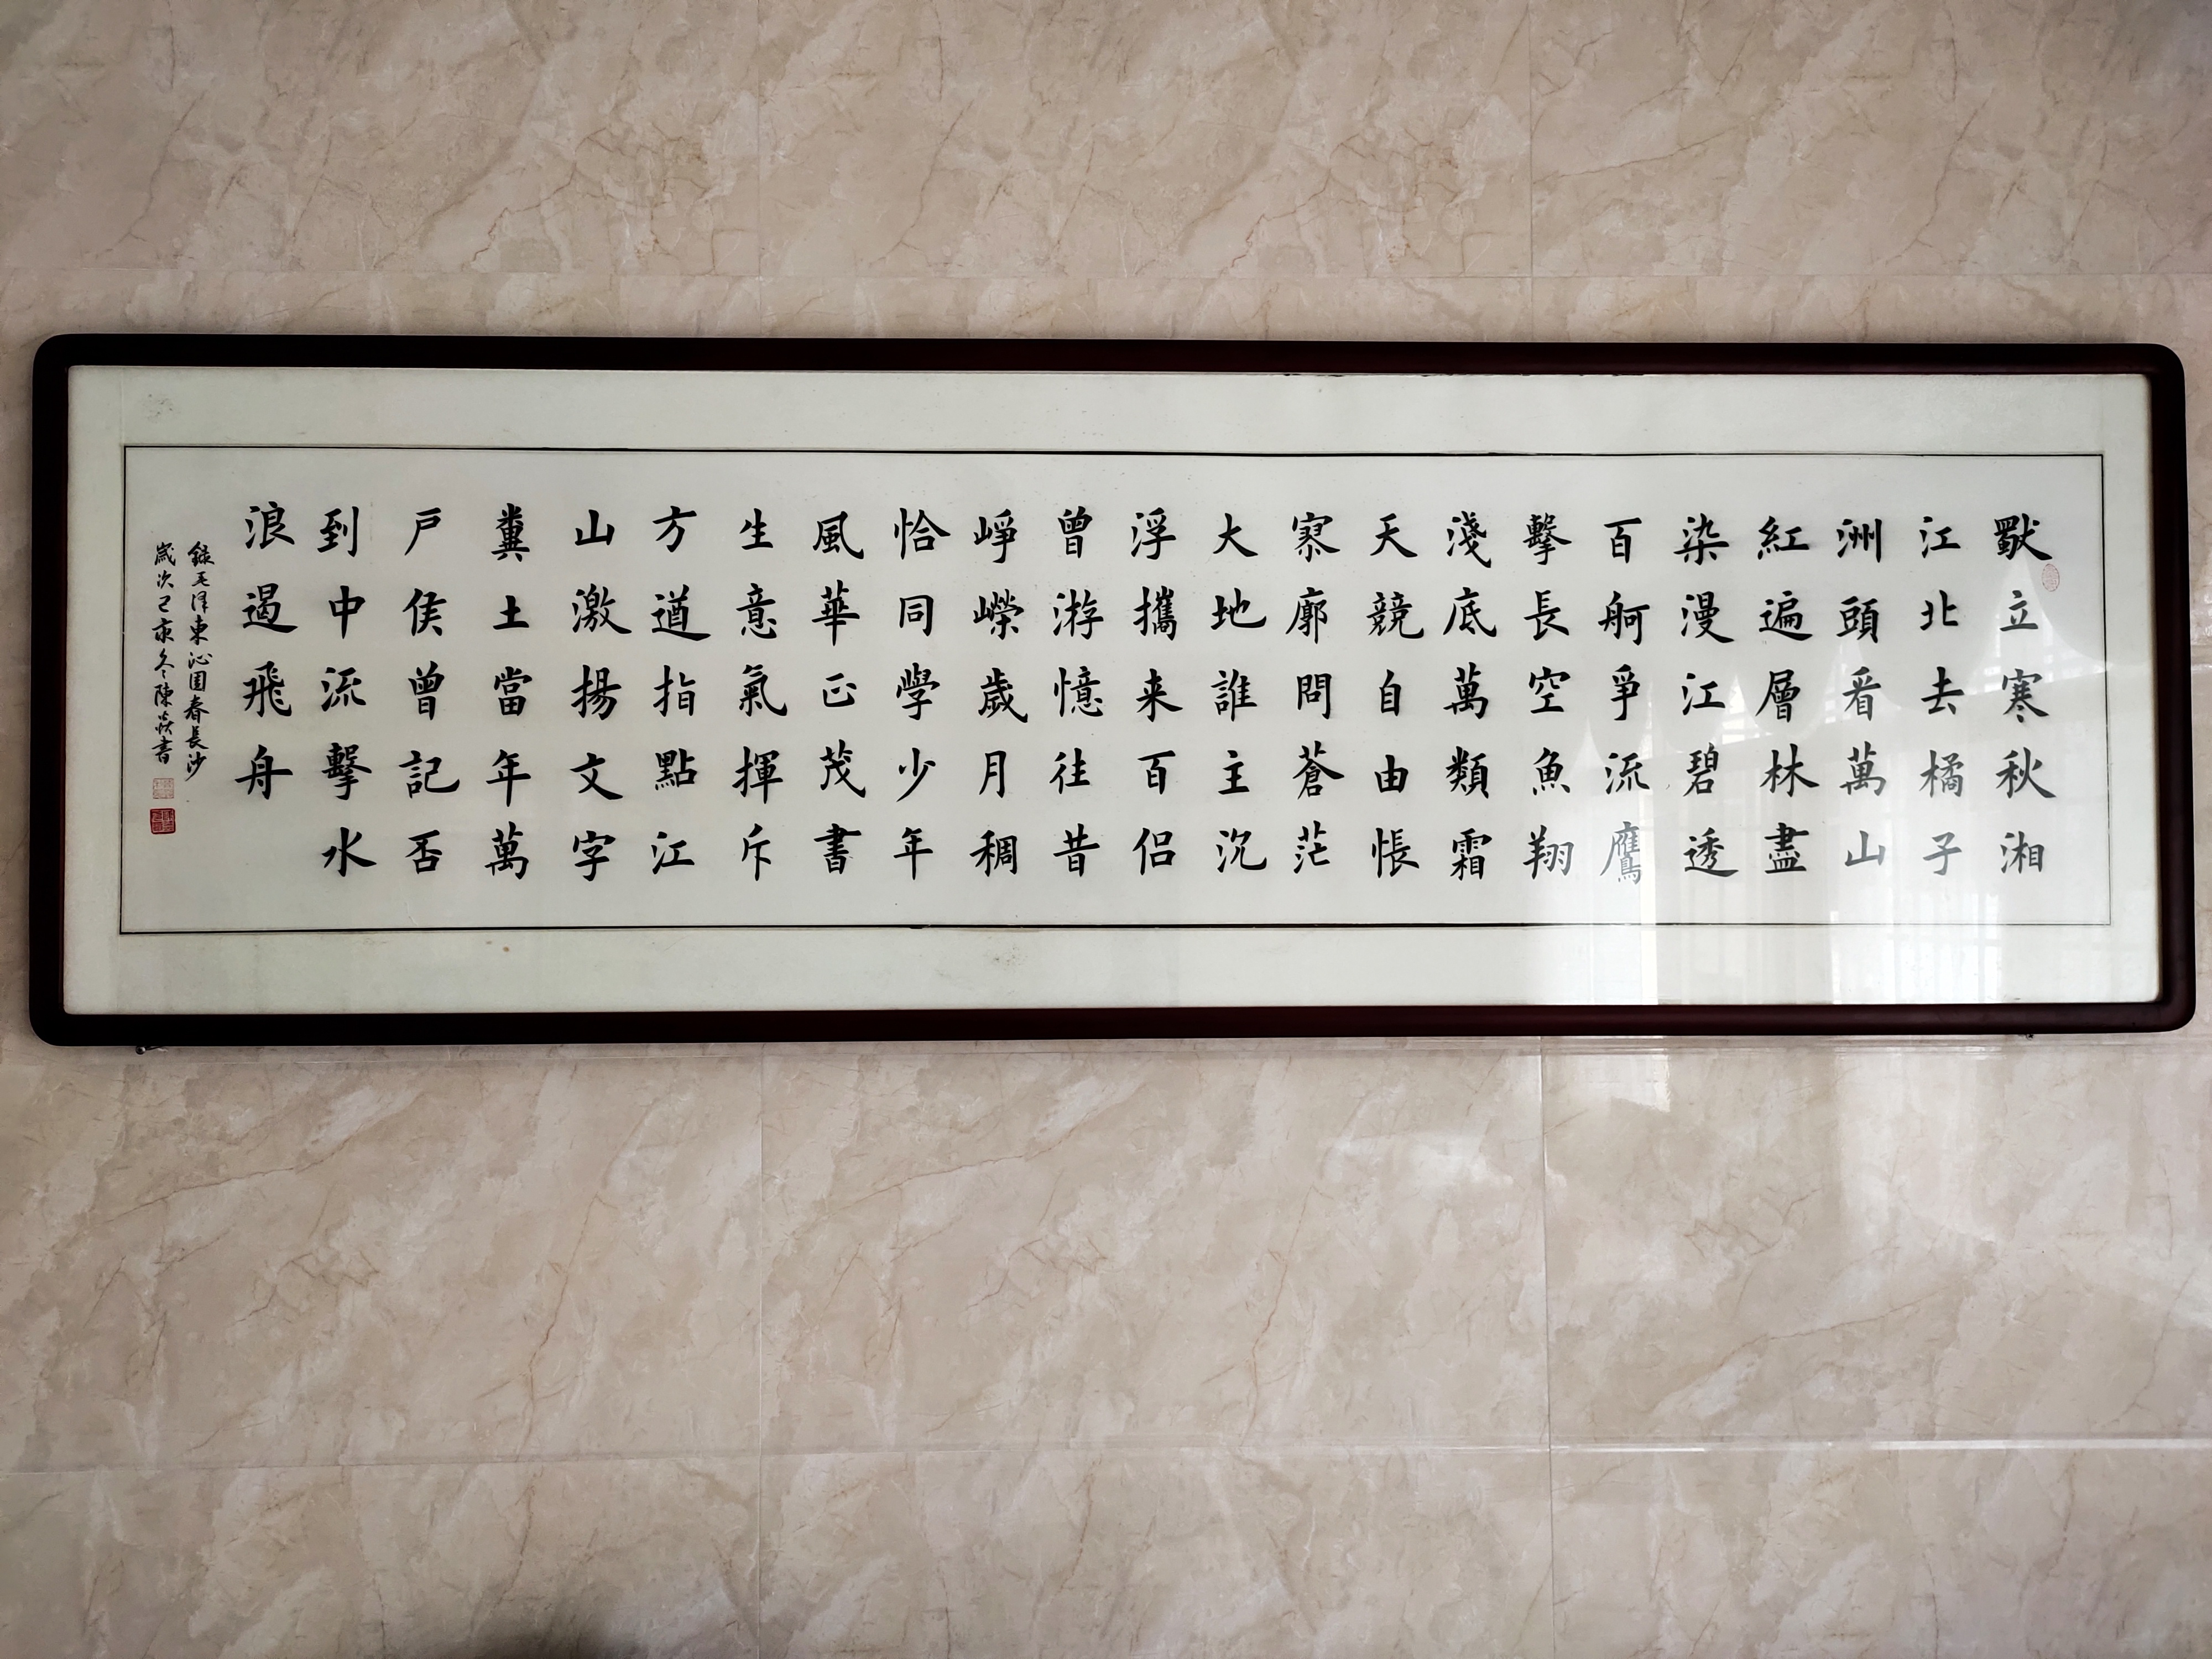 獨立寒秋湘
江北去橘子
洲頭看萬山
紅遍層林盡
染漫江碧透
百舸爭流鷹
擊長空魚翔
淺底萬類霜
天競自由悵
寥廓問蒼茫
大地誰主沉
浮攜来百侣
曾游憶往昔
崢嶸歲月稠
恰同學少年
風華正茂書
生意氣揮斥
方遒指點江
山激揚文字
糞土當年萬
戶侯曾記否
到中流擊水
浪遏飛舟
録毛澤東沁園春長沙
歲次己亥冬陳焱書